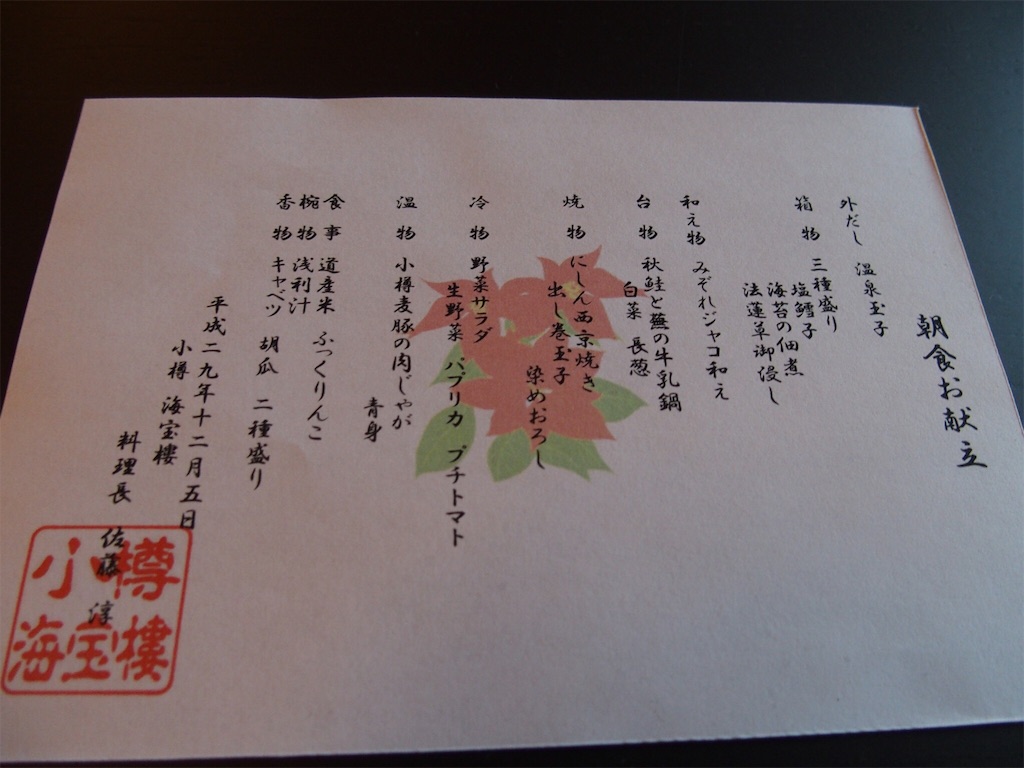 朝食お献立
外だし 温泉玉子
箱物 三種盛り
塩鱈子
海苔の佃煮
法蓮草御浸し
和え物 みぞれジャコ和え
台物 秋鮭と蕪の牛乳鍋
白菜 長葱
焼物 にしん西京焼き
出し巻玉子 染めおろし
冷物 野菜サラダ
生野菜 パプリカ プチトマト
温物 小樽麦豚の肉じゃが
青身
食事 道産米 ふっくりんこ
椀物 浅利汁
香物 キャベツ 胡瓜 二種盛り
平成二九年十二月五日
小樽 海宝樓
料理長 佐藤 淳
小樽
海宝樓